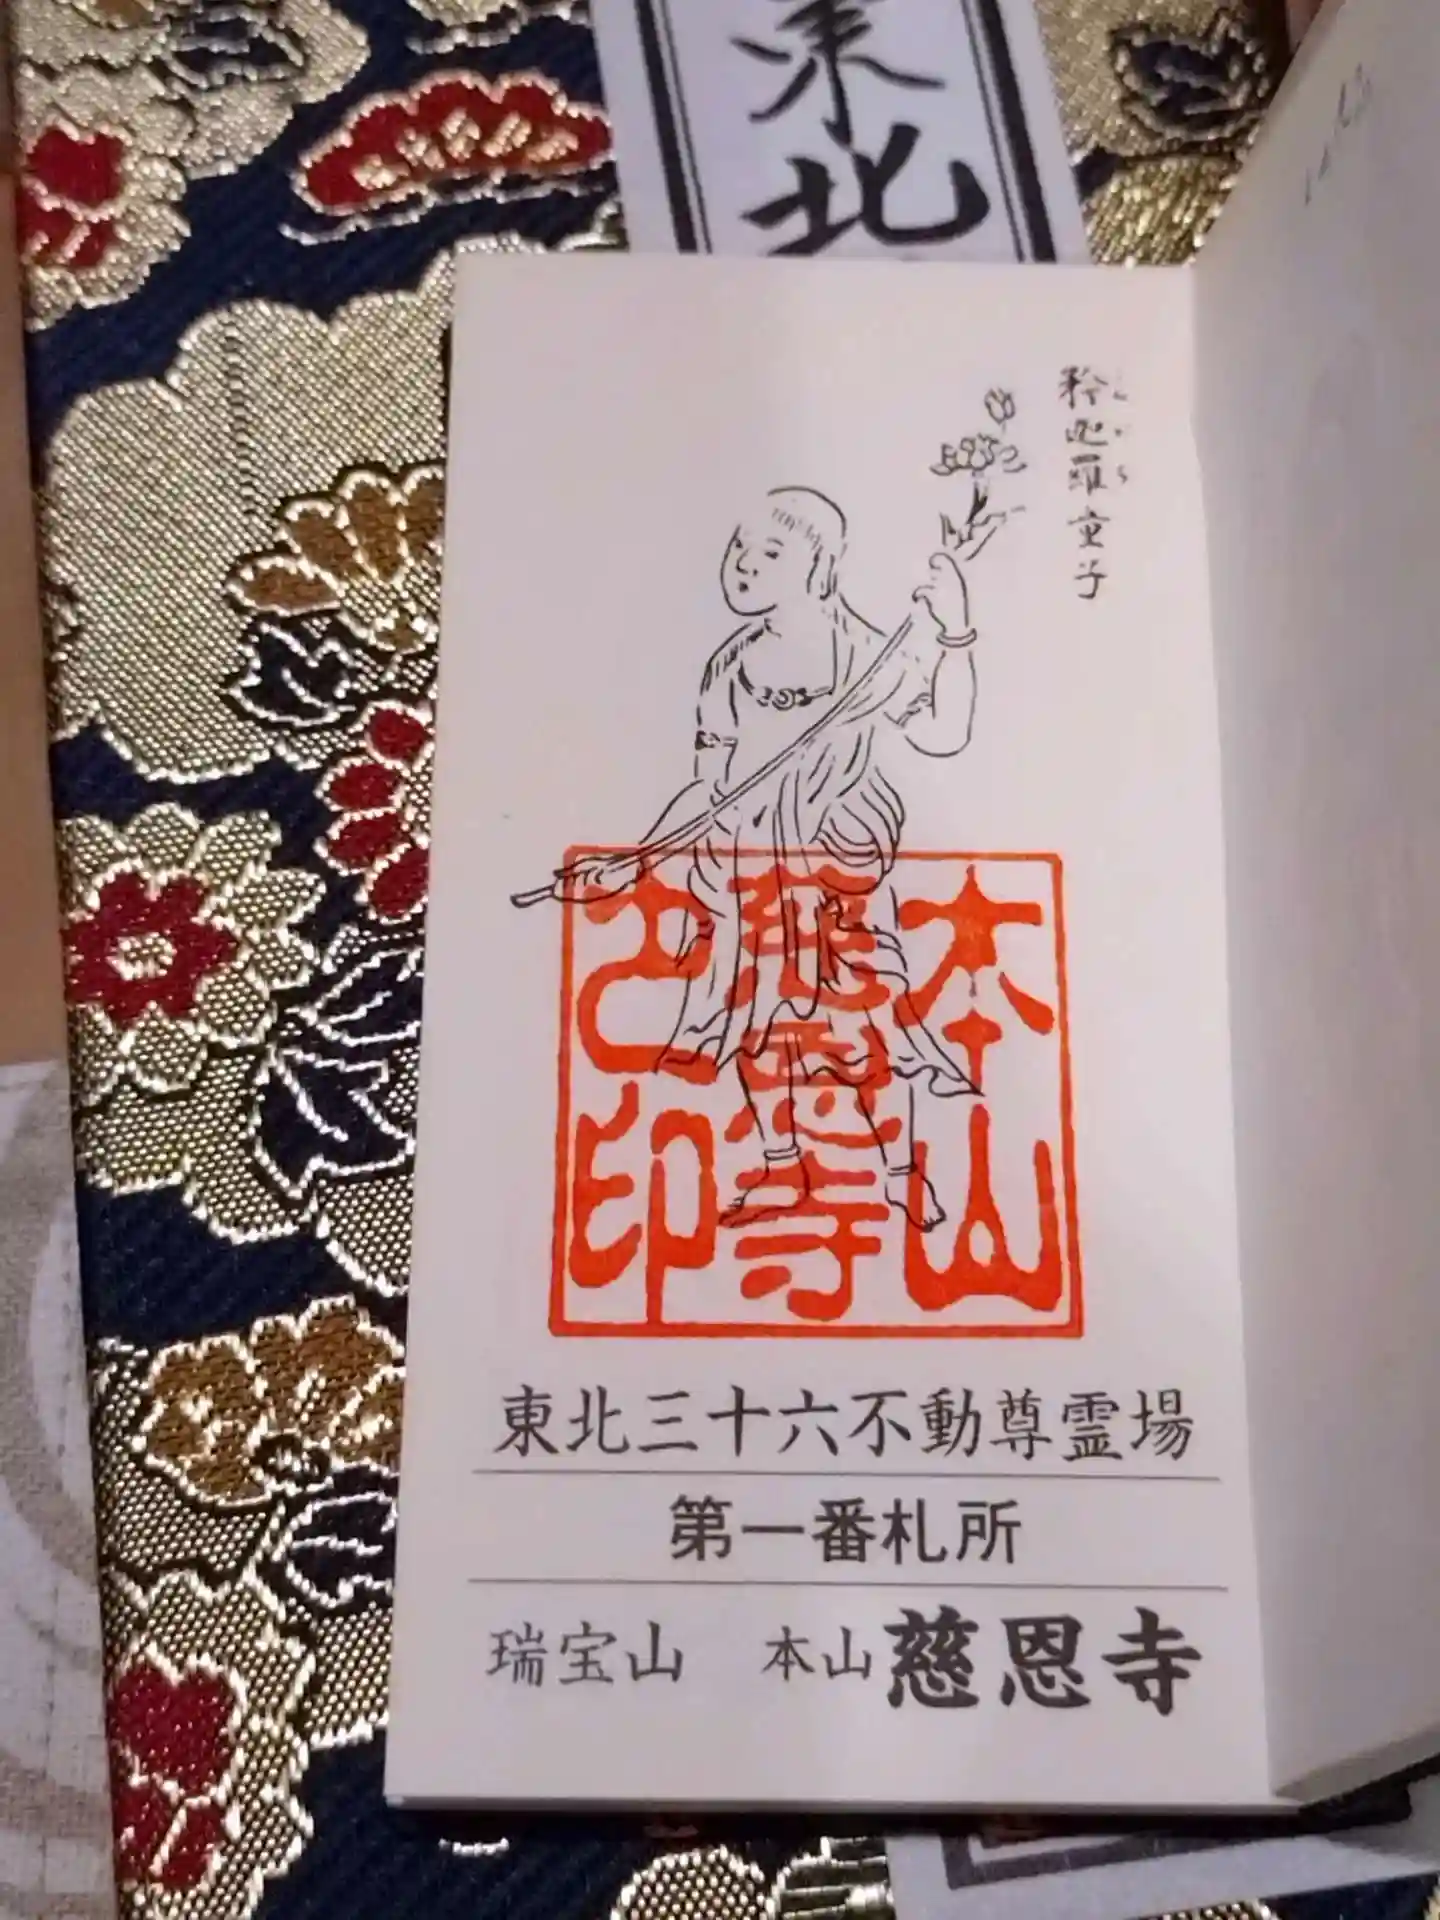 東北
矜迦羅童子
こんがら
本山
慈恩寺
之印
東北三十六不動尊霊場
第一番札所
瑞宝山 本山 慈恩寺